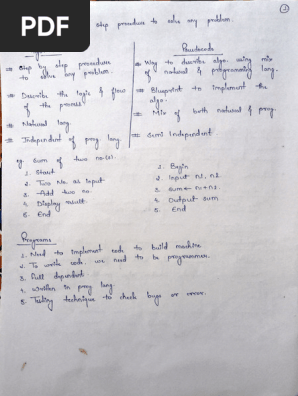 PDF
2
step procedure to solve any problem.
Pseudocode
Step by step procedure to solve any problem.
Describe the logic & flow of the process
Natural lang.
Independent of prog lang.
Way to describe algo. using mix of natural & programming lang.
Blueprint to implement the algo.
Mix of both natural & prog.
Semi Independent
eg. sum of two no.(s).
1. Start
2. Two No. as input
3. Add two no.
4. Display result
5. End
1. Begin
2. Input n1, n2.
3. Sum ← n1+n2.
4. Output sum
5. End
Programs
1. Need to implement code to build machine
2. To write code, we need to be programmer.
3. Full dependent.
4. Written in prog lang.
5. Testing technique to check bugs or error.